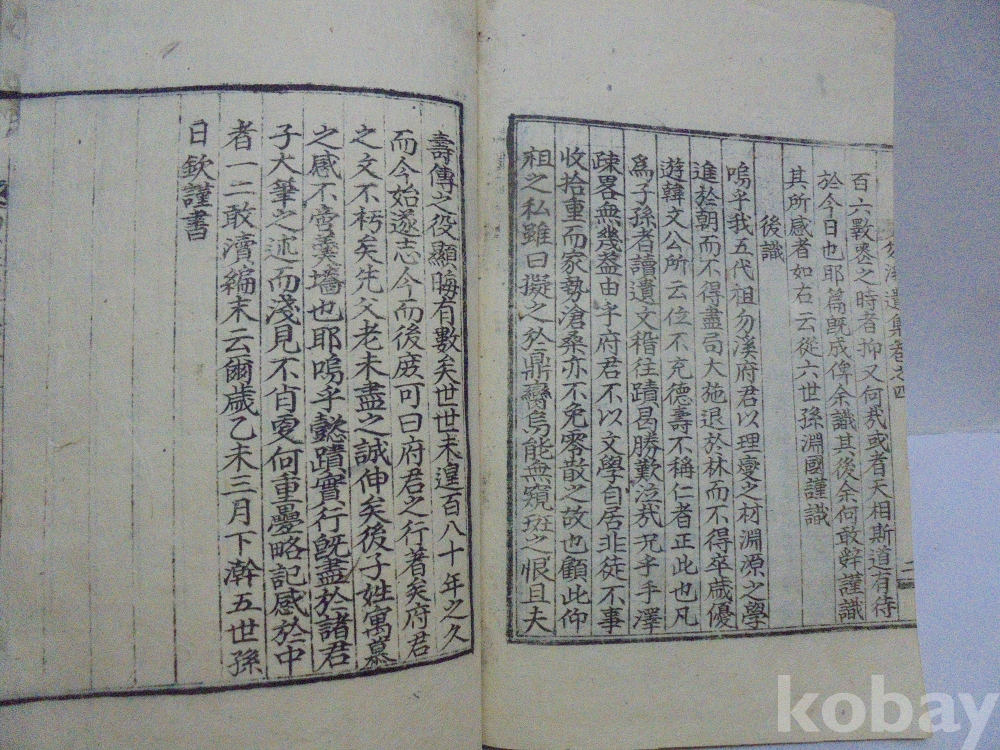 勿溪遺集卷之四
二
百六數窮之時者抑又何哉或者天相斯道有待
於今日也耶篇旣成俾余識其後余何敢辭謹識
其所感者如右云從六世孫淵國謹識
後識
嗚乎我五代祖勿溪府君以理燮之材淵源之學
進於朝而不得盡局大施退於林而不得卒歲優
遊韓文公所云位不充德壽不稱仁者正此也凡
爲子孫者讀遺文稽往蹟曷勝歎泣哉況乎手澤
疎畧無幾葢由乎府君不以文學自居非徒不事
收拾重而家勢滄桑亦不免零散之故也顧此仰
祖之私雖曰擬之於鼎臠烏能無窺斑之恨且夫
壽傳之役顯晦有數矣世世未遑百八十年之久
而今始遂志今而後庶可曰府君之行著矣府君
之文不朽矣先父老未盡之誠伸矣後子姓寓慕
之感不啻羹墻也耶嗚乎懿蹟實行旣盡於諸君
子大筆之述而淺見不肖更何重疊略記感於中
者一二敢瀆編末云爾歲乙未三月下澣五世孫
日欽謹書
kobay